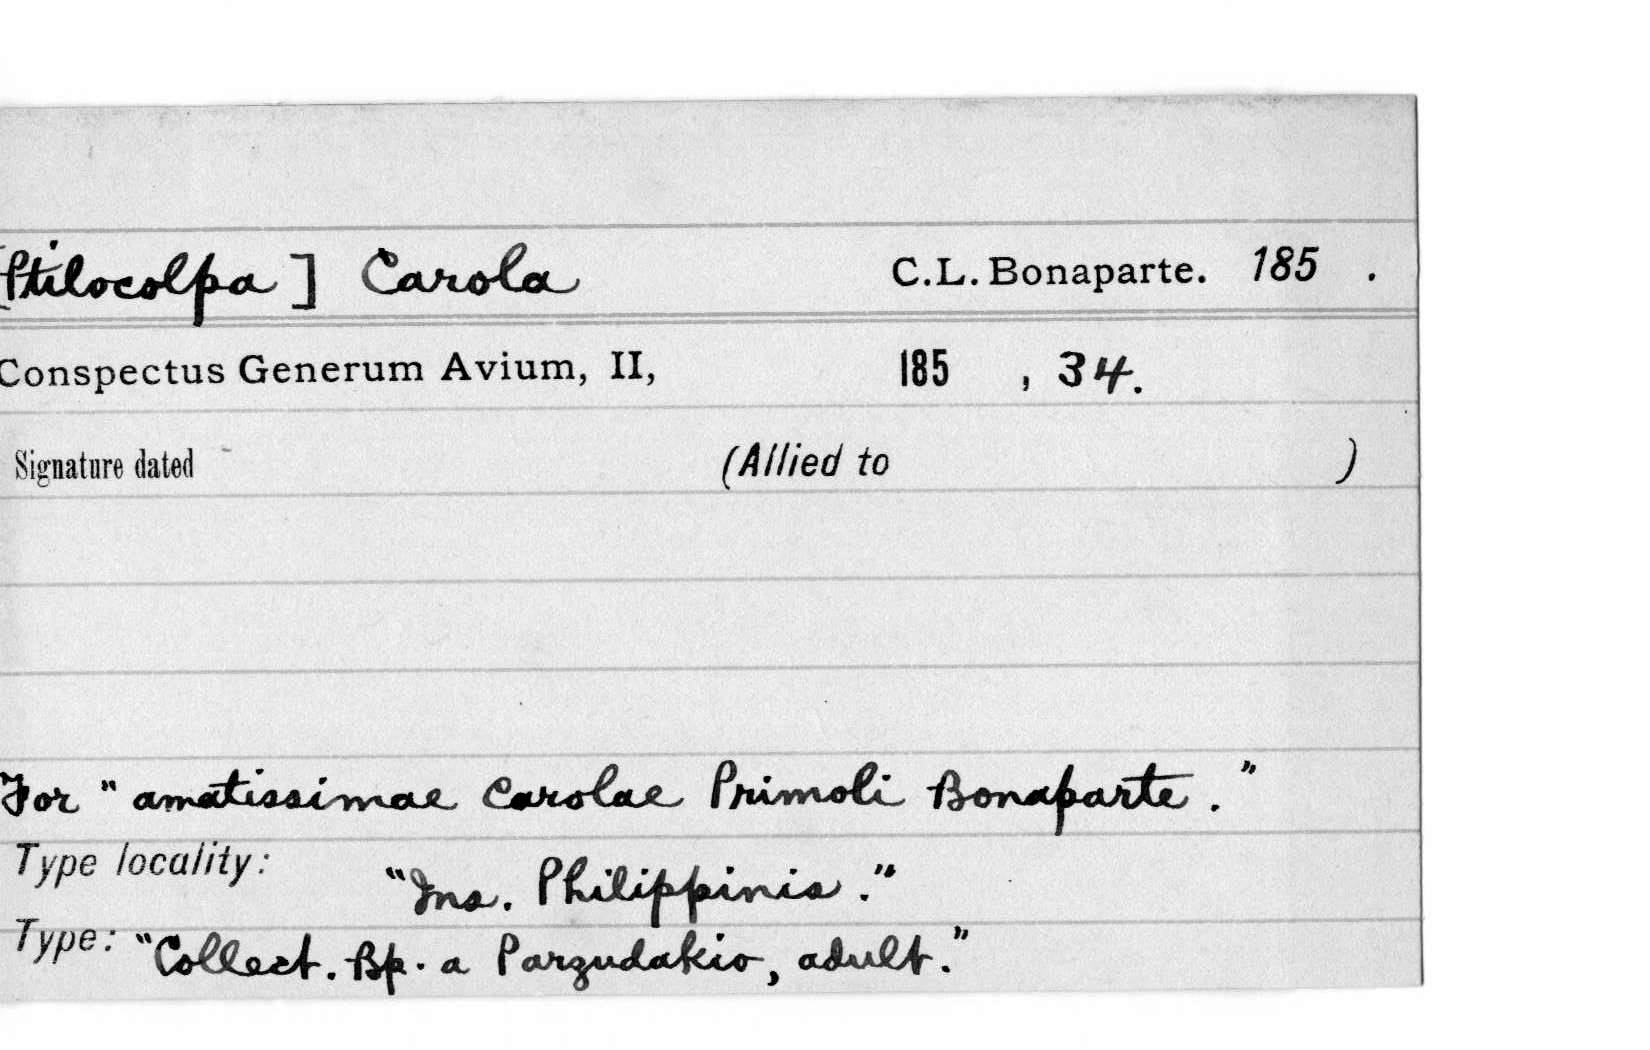 [Ptilocolpa] Carola C.L. Bonaparte. 185 .
Conspectus Generum Avium, II, 185 , 34.
Signature dated (Allied to )
For "amatissimae Carolae Primoli Bonaparte."
Type locality: "Ins. Philippinis."
Type: "Collect. Bp. a Parzudakio, adult."